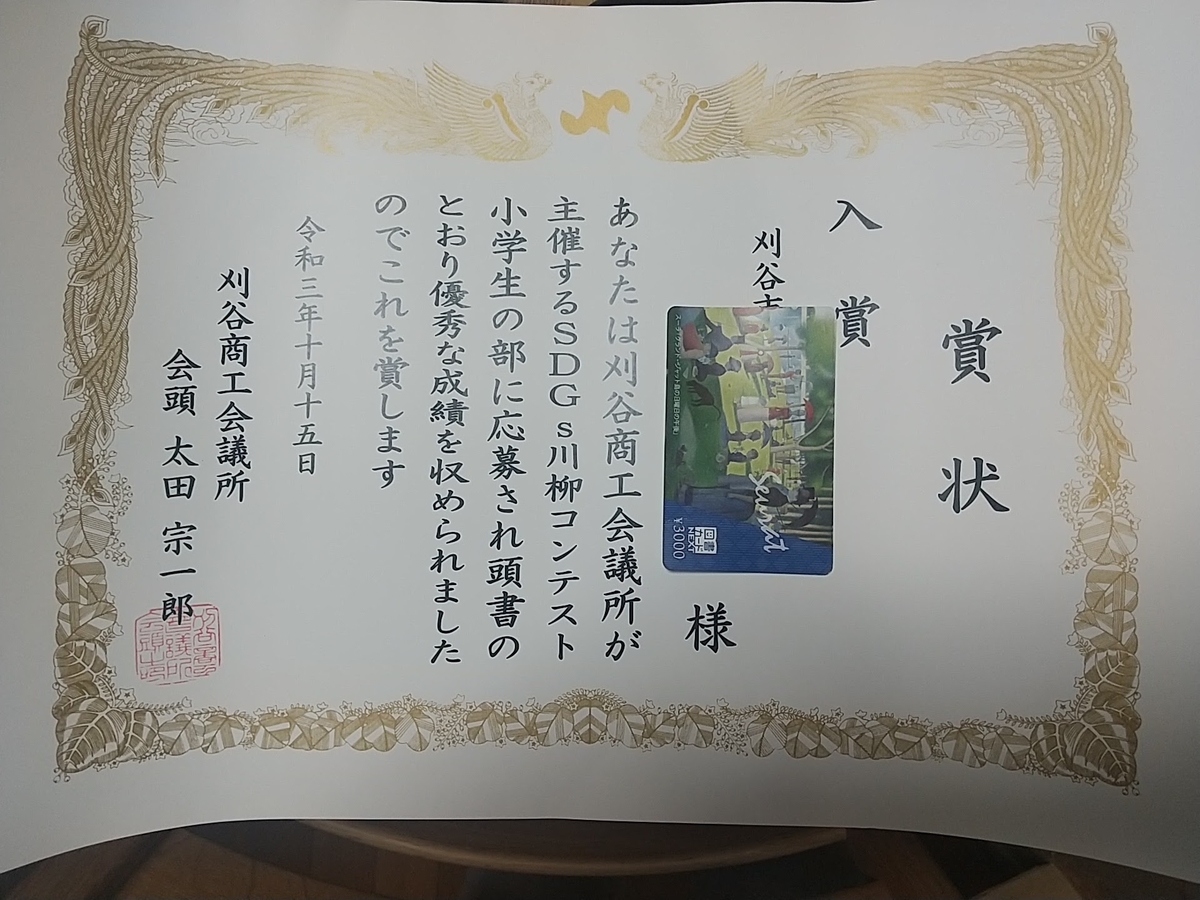 賞状
入賞
刈谷市
様
あなたは刈谷商工会議所が
主催するSDGs川柳コンテスト
小学生の部に応募され頭書の
とおり優秀な成績を収められました
のでこれを賞します
令和三年十月十五日
刈谷商工会議所
会頭 太田 宗一郎
Seurat
図書カード
NEXT
¥3000